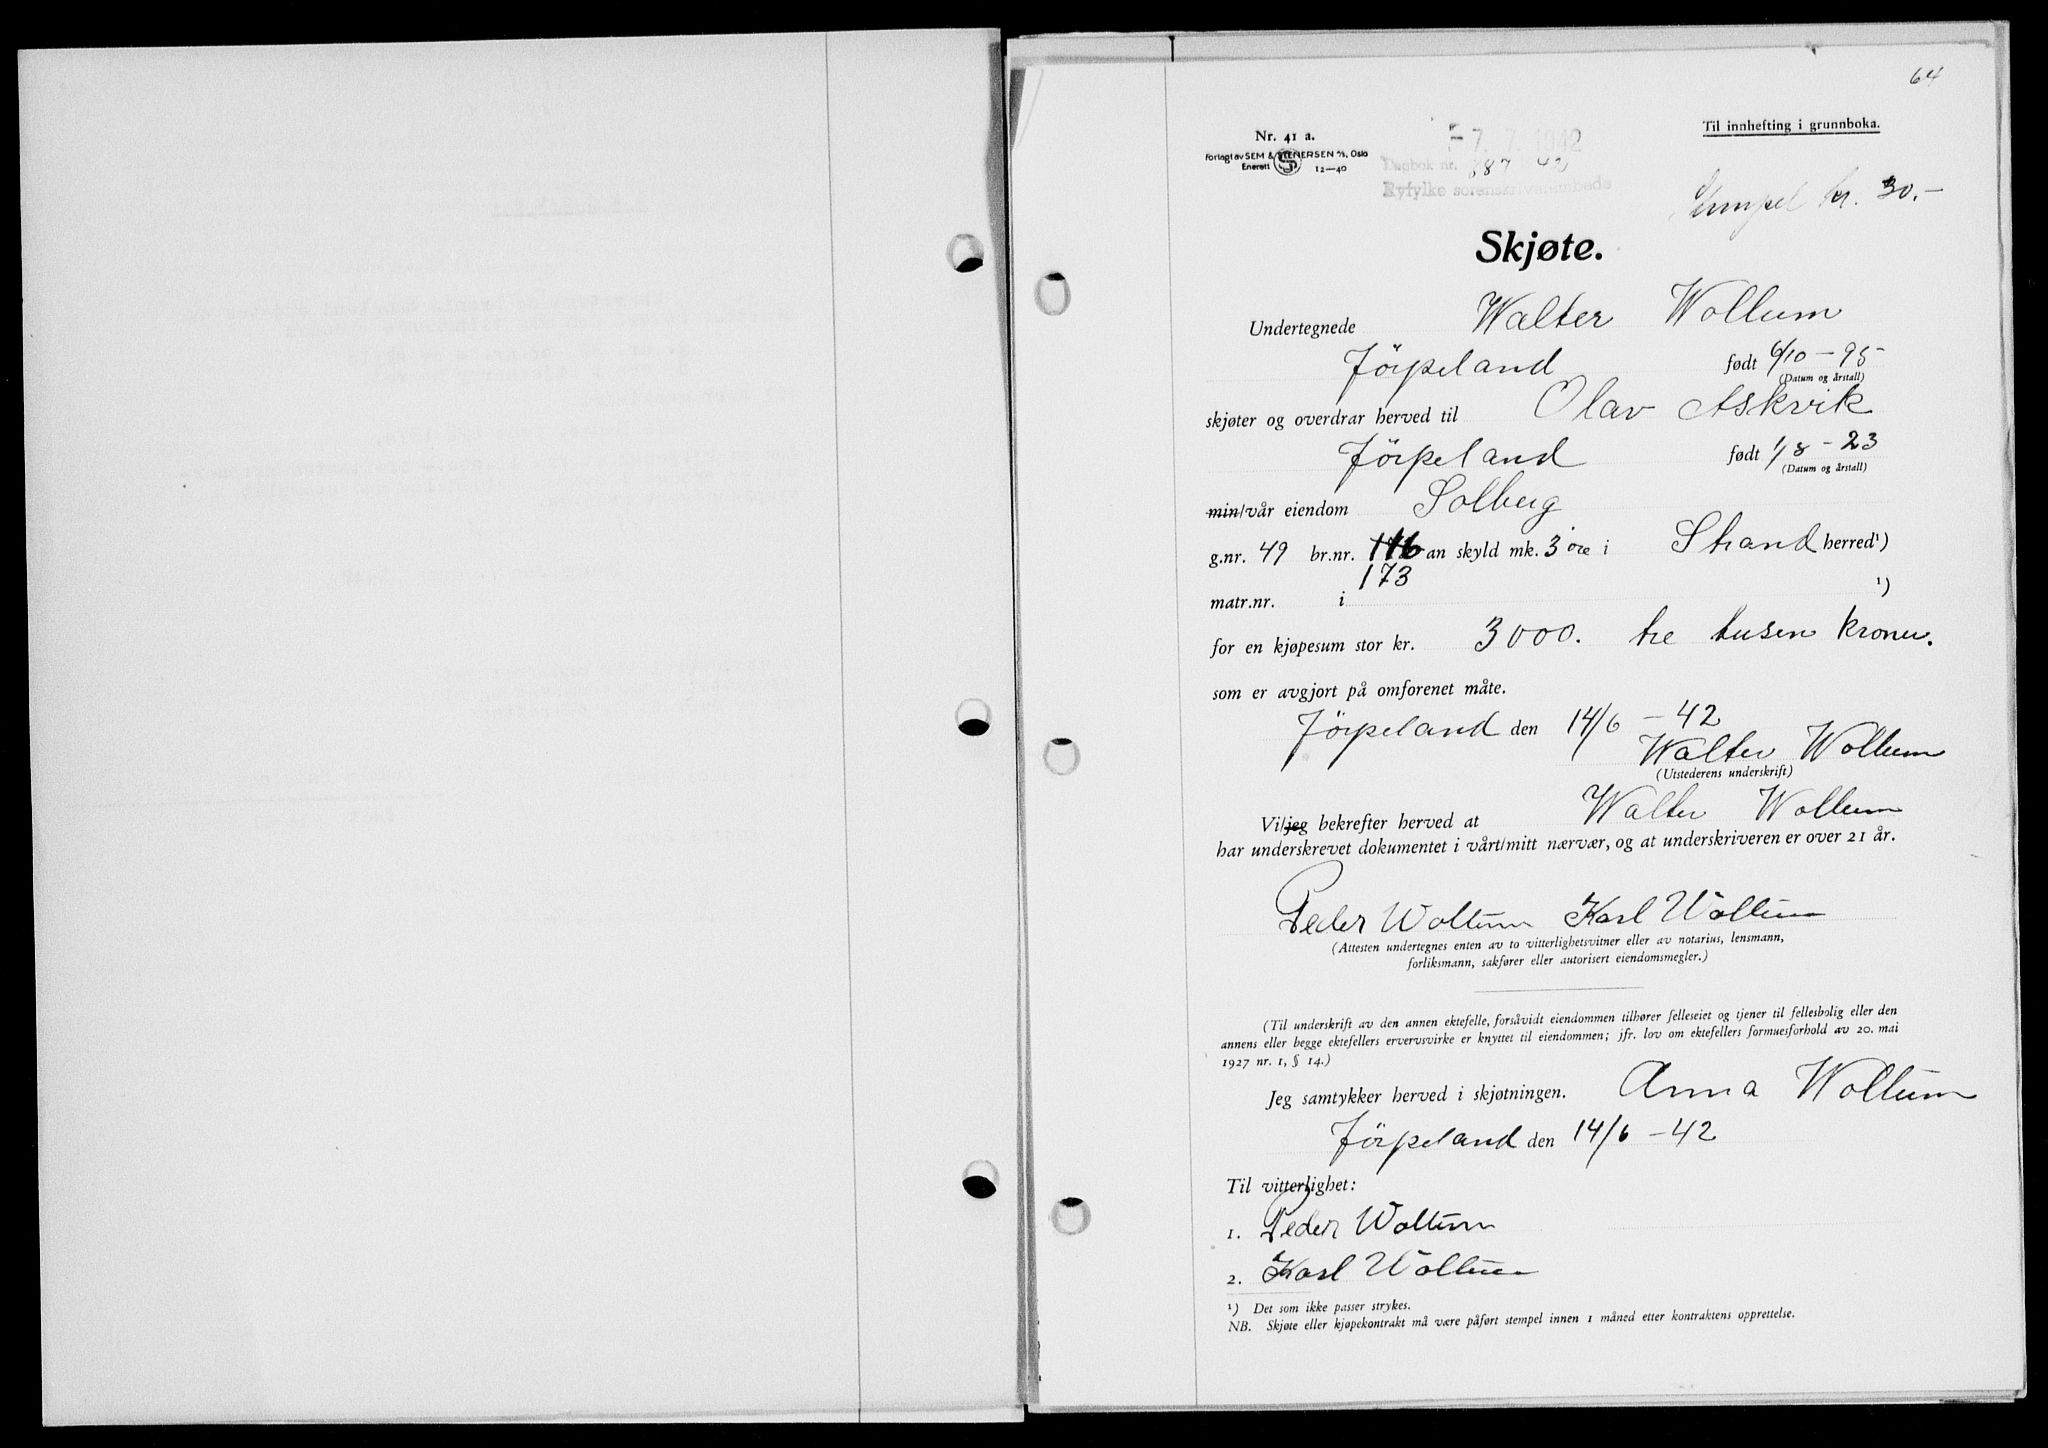 64
Nr. 41 a.
Forlagt av SEM & STENERSEN A/S, Oslo
Enerett 12—40
- 7. 7. 1942
Dagbok nr. 887 42
Ryfylke sorenskriverembede
Til innhefting i grunnboka.
Stempel kr. 30.-
Skjøte.
Undertegnede Walter Wollum
Jörpeland født 6/10 - 95
(Datum og årstall)
skjøter og overdrar herved til Olav Askvik
Jörpeland født 1/8 - 23
(Datum og årstall)
min/vår eiendom Solberg
g.nr. 49 br.nr. 116 an skyld mk. 3 øre i Strand herred¹)
173
matr.nr. i ¹)
for en kjøpesum stor kr. 3000. tre tusen kroner.
som er avgjort på omforenet måte.
Jörpeland den 14/6 - 42
Walter Wollum
(Utstederens underskrift)
Vi/jeg bekrefter herved at Walter Wollum
har underskrevet dokumentet i vårt/mitt nærvær, og at underskriveren er over 21 år.
Peder Wollum Karl Wollum
(Attesten undertegnes enten av to vitterlighetsvitner eller av notarius, lensmann,
forliksmann, sakfører eller autorisert eiendomsmegler.)
(Til underskrift av den annen ektefelle, forsåvidt eiendommen tilhører felleseiet og tjener til fellesbolig eller den
annens eller begge ektefellers ervervsvirke er knyttet til eiendommen; jfr. lov om ektefellers formuesforhold av 20. mai
1927 nr. 1, § 14.)
Jeg samtykker herved i skjøtningen. Anna Wollum
Jörpeland den 14/6 - 42
Til vitterlighet:
1. Peder Wollum
2. Karl Wollum
¹) Det som ikke passer strykes.
NB. Skjøte eller kjøpekontrakt må være påført stempel innen 1 måned etter kontraktens opprettelse.